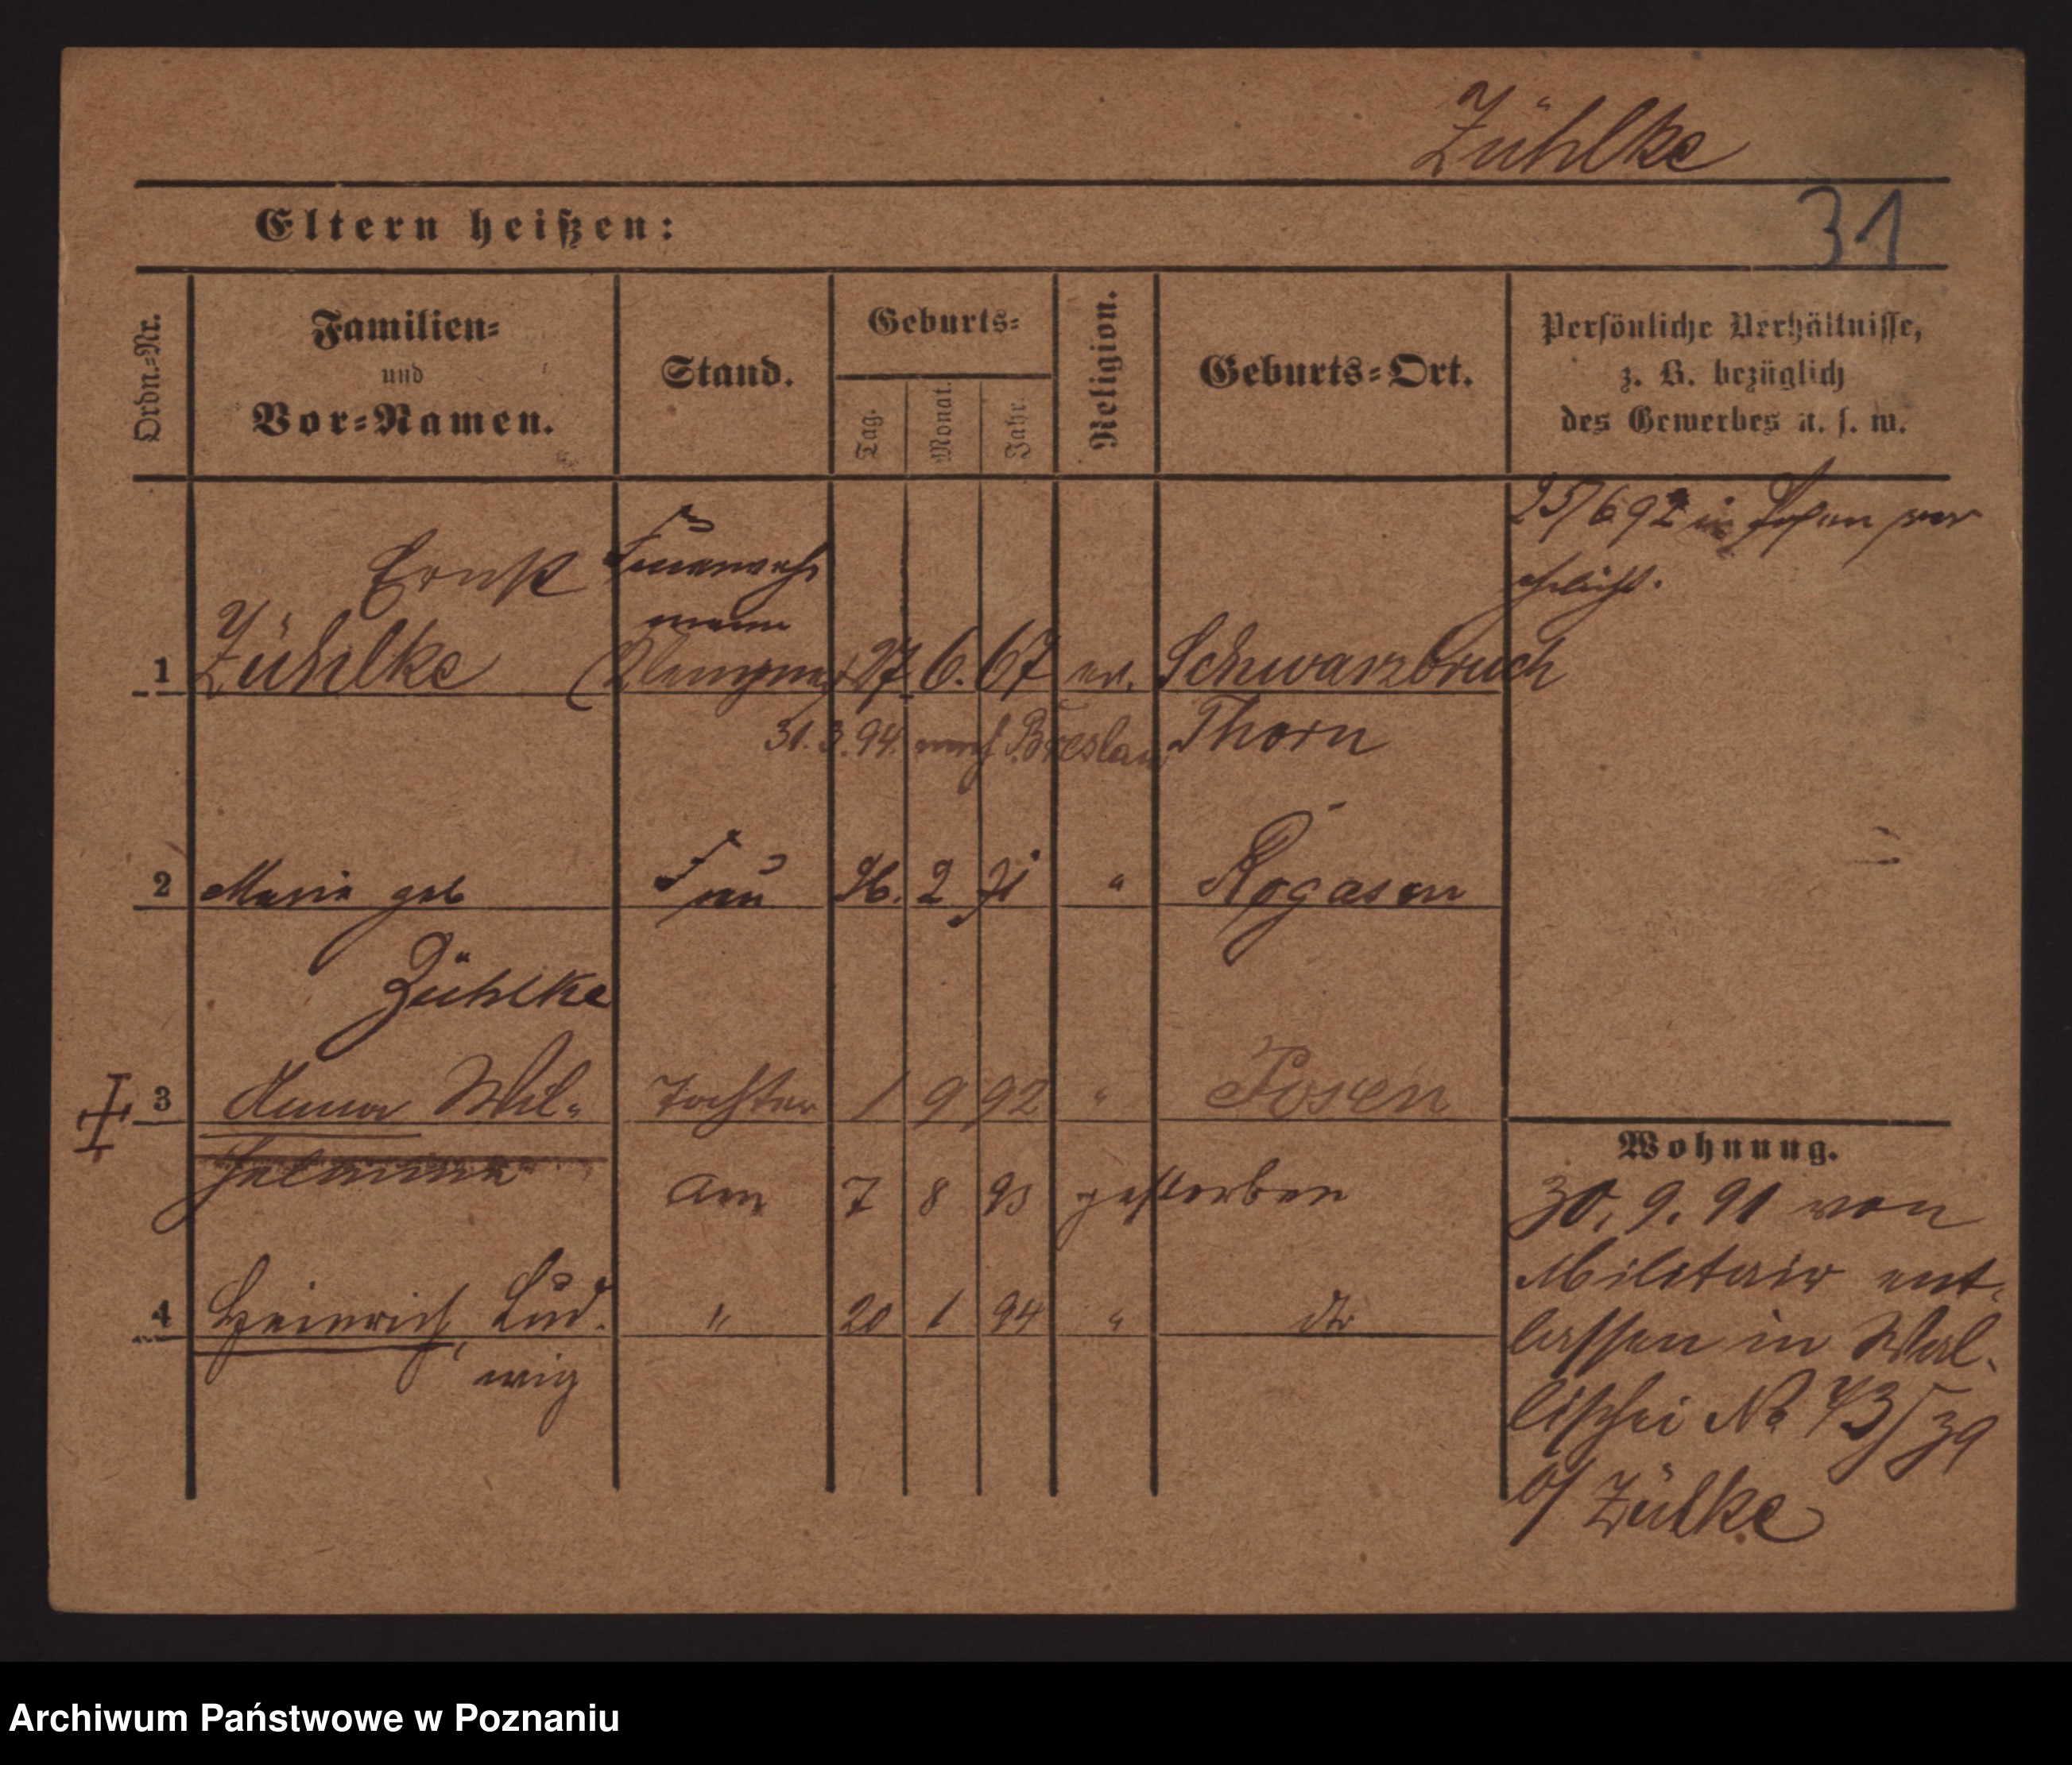 Zühlke
Eltern heißen:
31
Ordn.-Nr.
Familien-
und
Vor-Namen.
Stand.
Geburts-
Tag.
Monat.
Jahr.
Religion.
Geburts-Ort.
Persönliche Verhältnisse,
z. B. bezüglich
des Gewerbes u. s. w.
25/6 92 in Posen ver
ehelicht.
Ernst Feuerwehr
mann
1 Zühlke (Klempner) 27 6. 67 ev. Schwarzbruch
31.3.94. nach Breslau Thorn
2 Marie geb Frau 26. 2 71 " Rogasen
Zühlke
3 Anna Wil- Tochter 1 9 92 " Posen
helmine
Am 7 8 93 gestorben
4 Heinrich, Lud- " 20 1 94 " dto
wig
Wohnung.
30. 9. 91 von
Militair ent-
lassen in Wal-
lischei No 73/39
b/ Zülke
Archiwum Państwowe w Poznaniu